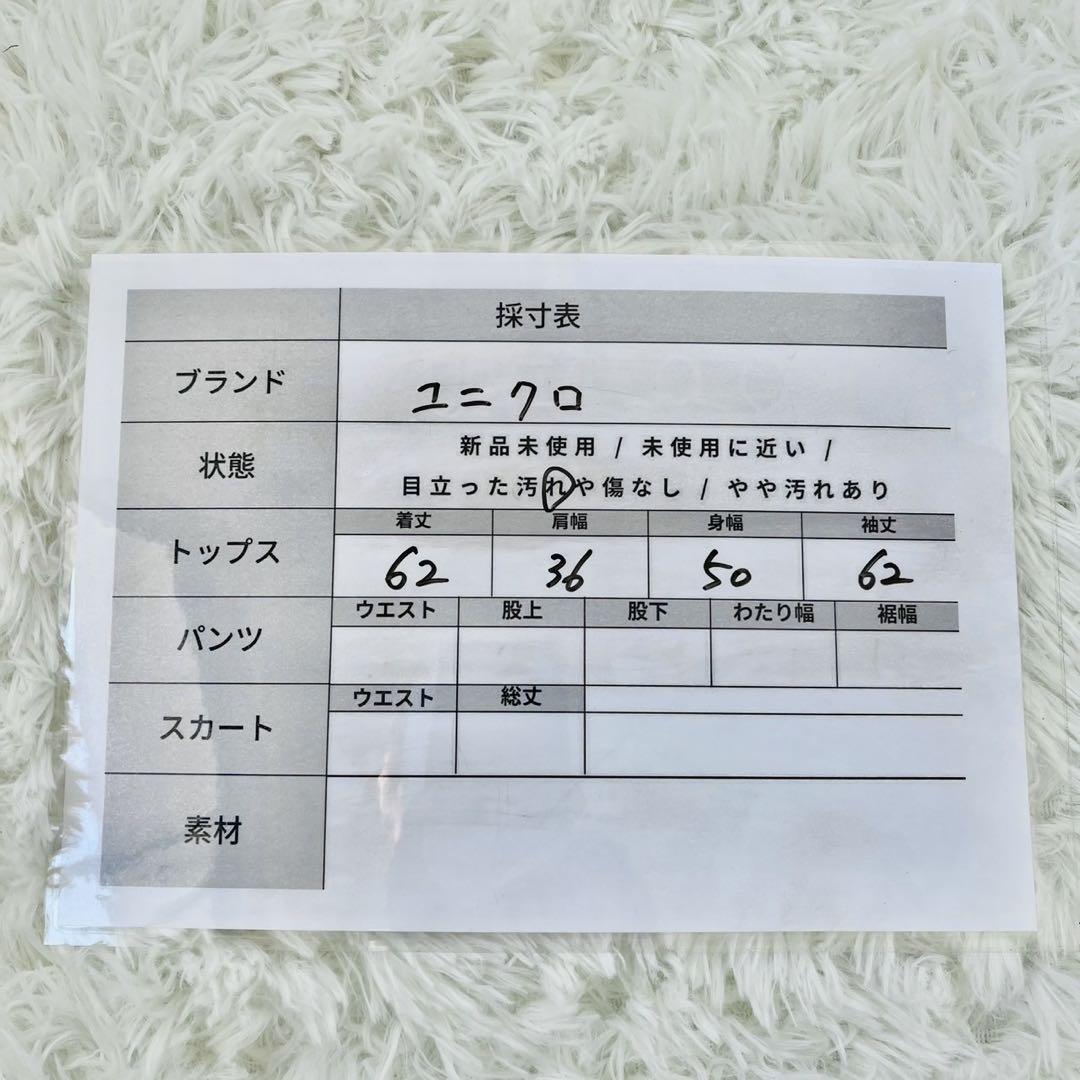 採寸表
ブランド ユニクロ
状態 新品未使用 / 未使用に近い /
目立った汚れや傷なし / やや汚れあり
トップス 着丈 肩幅 身幅 袖丈
62 36 50 62
パンツ ウエスト 股上 股下 わたり幅 裾幅
スカート ウエスト 総丈
素材